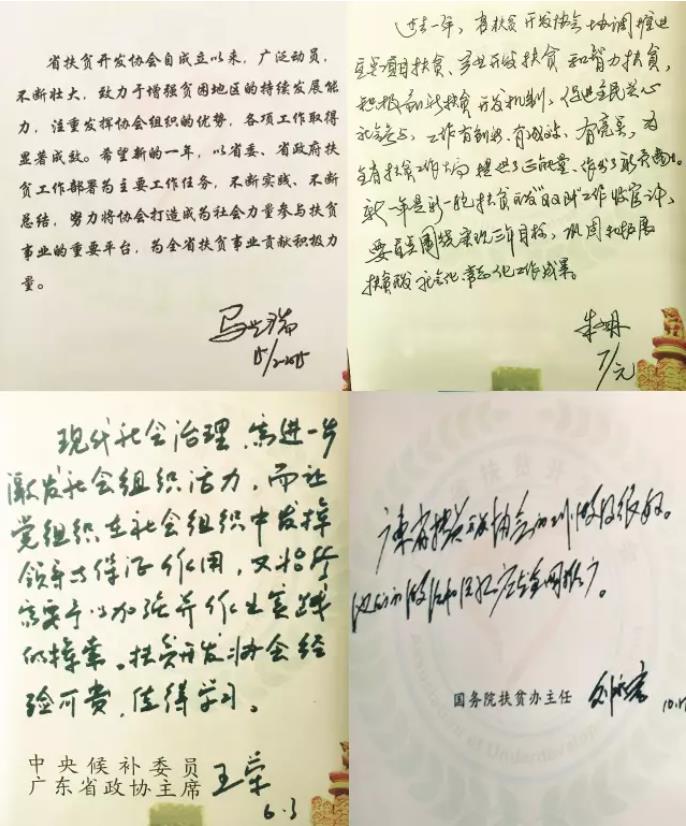 省扶贫开发协会自成立以来，广泛动员，
不断壮大，致力于增强贫困地区的持续发展能
力，注重发挥协会组织的优势，各项工作取得
显著成效。希望新的一年，以省委、省政府扶
贫工作部署为主要工作任务，不断实践、不断
总结，努力将协会打造成为社会力量参与扶贫
事业的重要平台，为全省扶贫事业贡献积极力
量。
马兴瑞
15/2-2015
过去一年，省扶贫开发协会协调推进
重点项目扶贫、产业开发扶贫和智力扶贫，
积极创新扶贫开发机制，促进全民关心
社会参与，工作有创新、有成效、有亮点，为
全省扶贫工作大局提供了正能量、作出了新贡献。
新一年是新一轮扶贫开发“双到”工作收官之年，
要重点围绕实现三年目标，巩固和拓展
扶贫 社会化、常态化工作成果。
7/元
现代社会治理，需进一步
激发社会组织活力，而让
党组织在社会组织中发挥
领导与保证作用，又恰恰
需要予以加强并作出实践
的探索。扶贫开发协会经
验可贵，值得学习。
中央候补委员
广东省政协主席 王荣
6.3
广东省扶贫开发协会 做得很好。
他们的做法和经验应在全国推广。
国务院扶贫办主任 刘永富